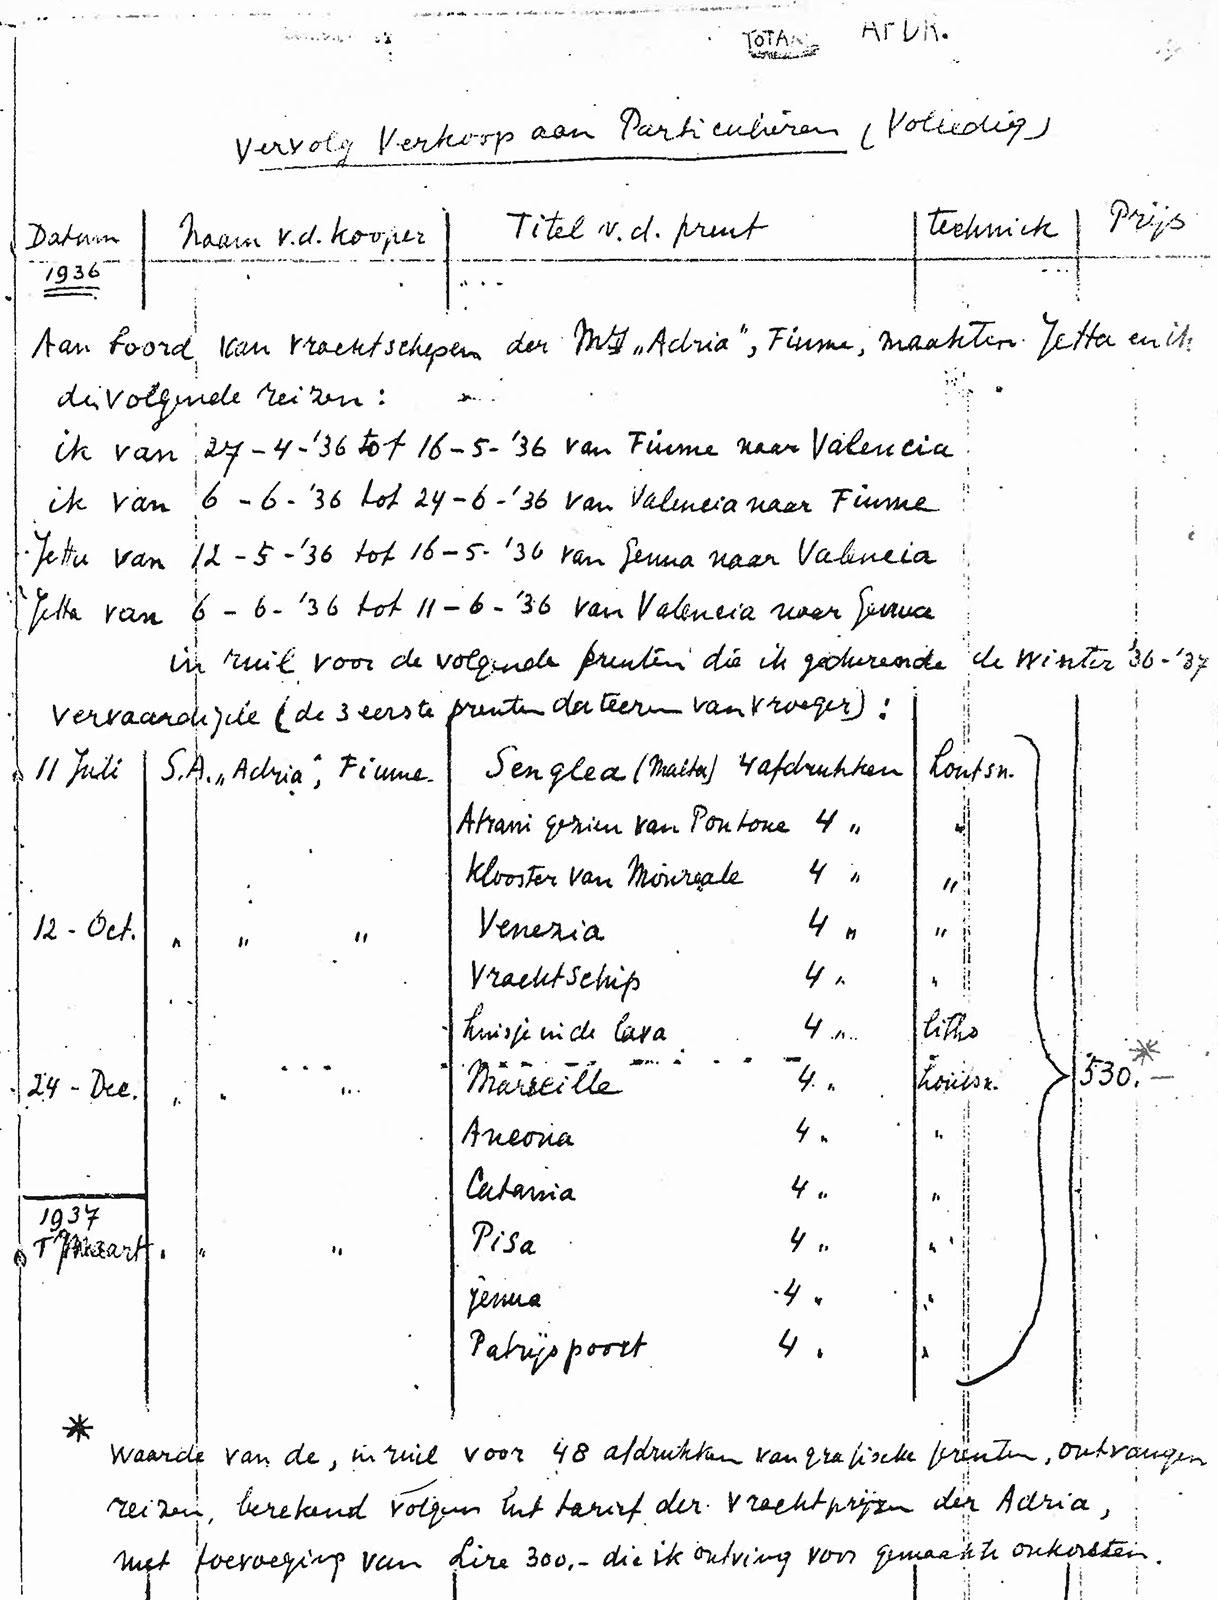 TOTAAL
Vervolg Verkoop aan Particulieren (Volledig)
Datum Naam v.d. kooper Titel v.d. prent techniek Prijs
1936
Aan boord van vrachtschepen der Mij „Adria", Fiume, maakten Jetta en ik
de volgende reizen:
ik van 27-4-'36 tot 16-5-'36 van Fiume naar Valencia
ik van 6-6-'36 tot 24-6-'36 van Valencia naar Fiume
Jetta van 12-5-'36 tot 16-5-'36 van Genua naar Valencia
Jetta van 6-6-'36 tot 11-6-'36 van Valencia naar Genua
in ruil voor de volgende prenten die ik gedurende de Winter '36-'37
vervaardigde (de 3 eerste prenten dateeren van vroeger):
11 Juli S.A. „Adria", Fiume. Senglea (Malta) 4 afdrukken houtsn.
Atrani gezien van Pontone 4 " "
Klooster van Monreale 4 " "
12 - Oct. " " " Venezia 4 " "
Vrachtschip 4 " "
huisje in de lava 4 " litho
24 - Dec. " " " Marseille 4 " houtsn. 530.* —
Ancona 4 " "
Catania 4 " "
1937
Maart " " " Pisa 4 " "
genua 4 " "
Patrijspoort 4 " "
* Waarde van de, in ruil voor 48 afdrukken van grafische prenten, ontvangen
reizen, berekend volgens het tarief der vrachtprijzen der Adria,
met toevoeging van Lire 300.- die ik ontving voor gemaakte onkosten.